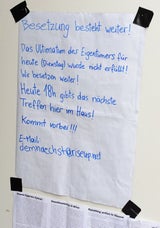 Besetzung besteht weiter!
Das Ultimatum des Eigentümers für
heute (Dienstag) wurde nicht erfüllt!
Wir besetzen weiter!
Heute 18h gibts das nächste
Treffen hier im Haus!
Kommt vorbei!!!
E-Mail:
demnaechst@riseup.net